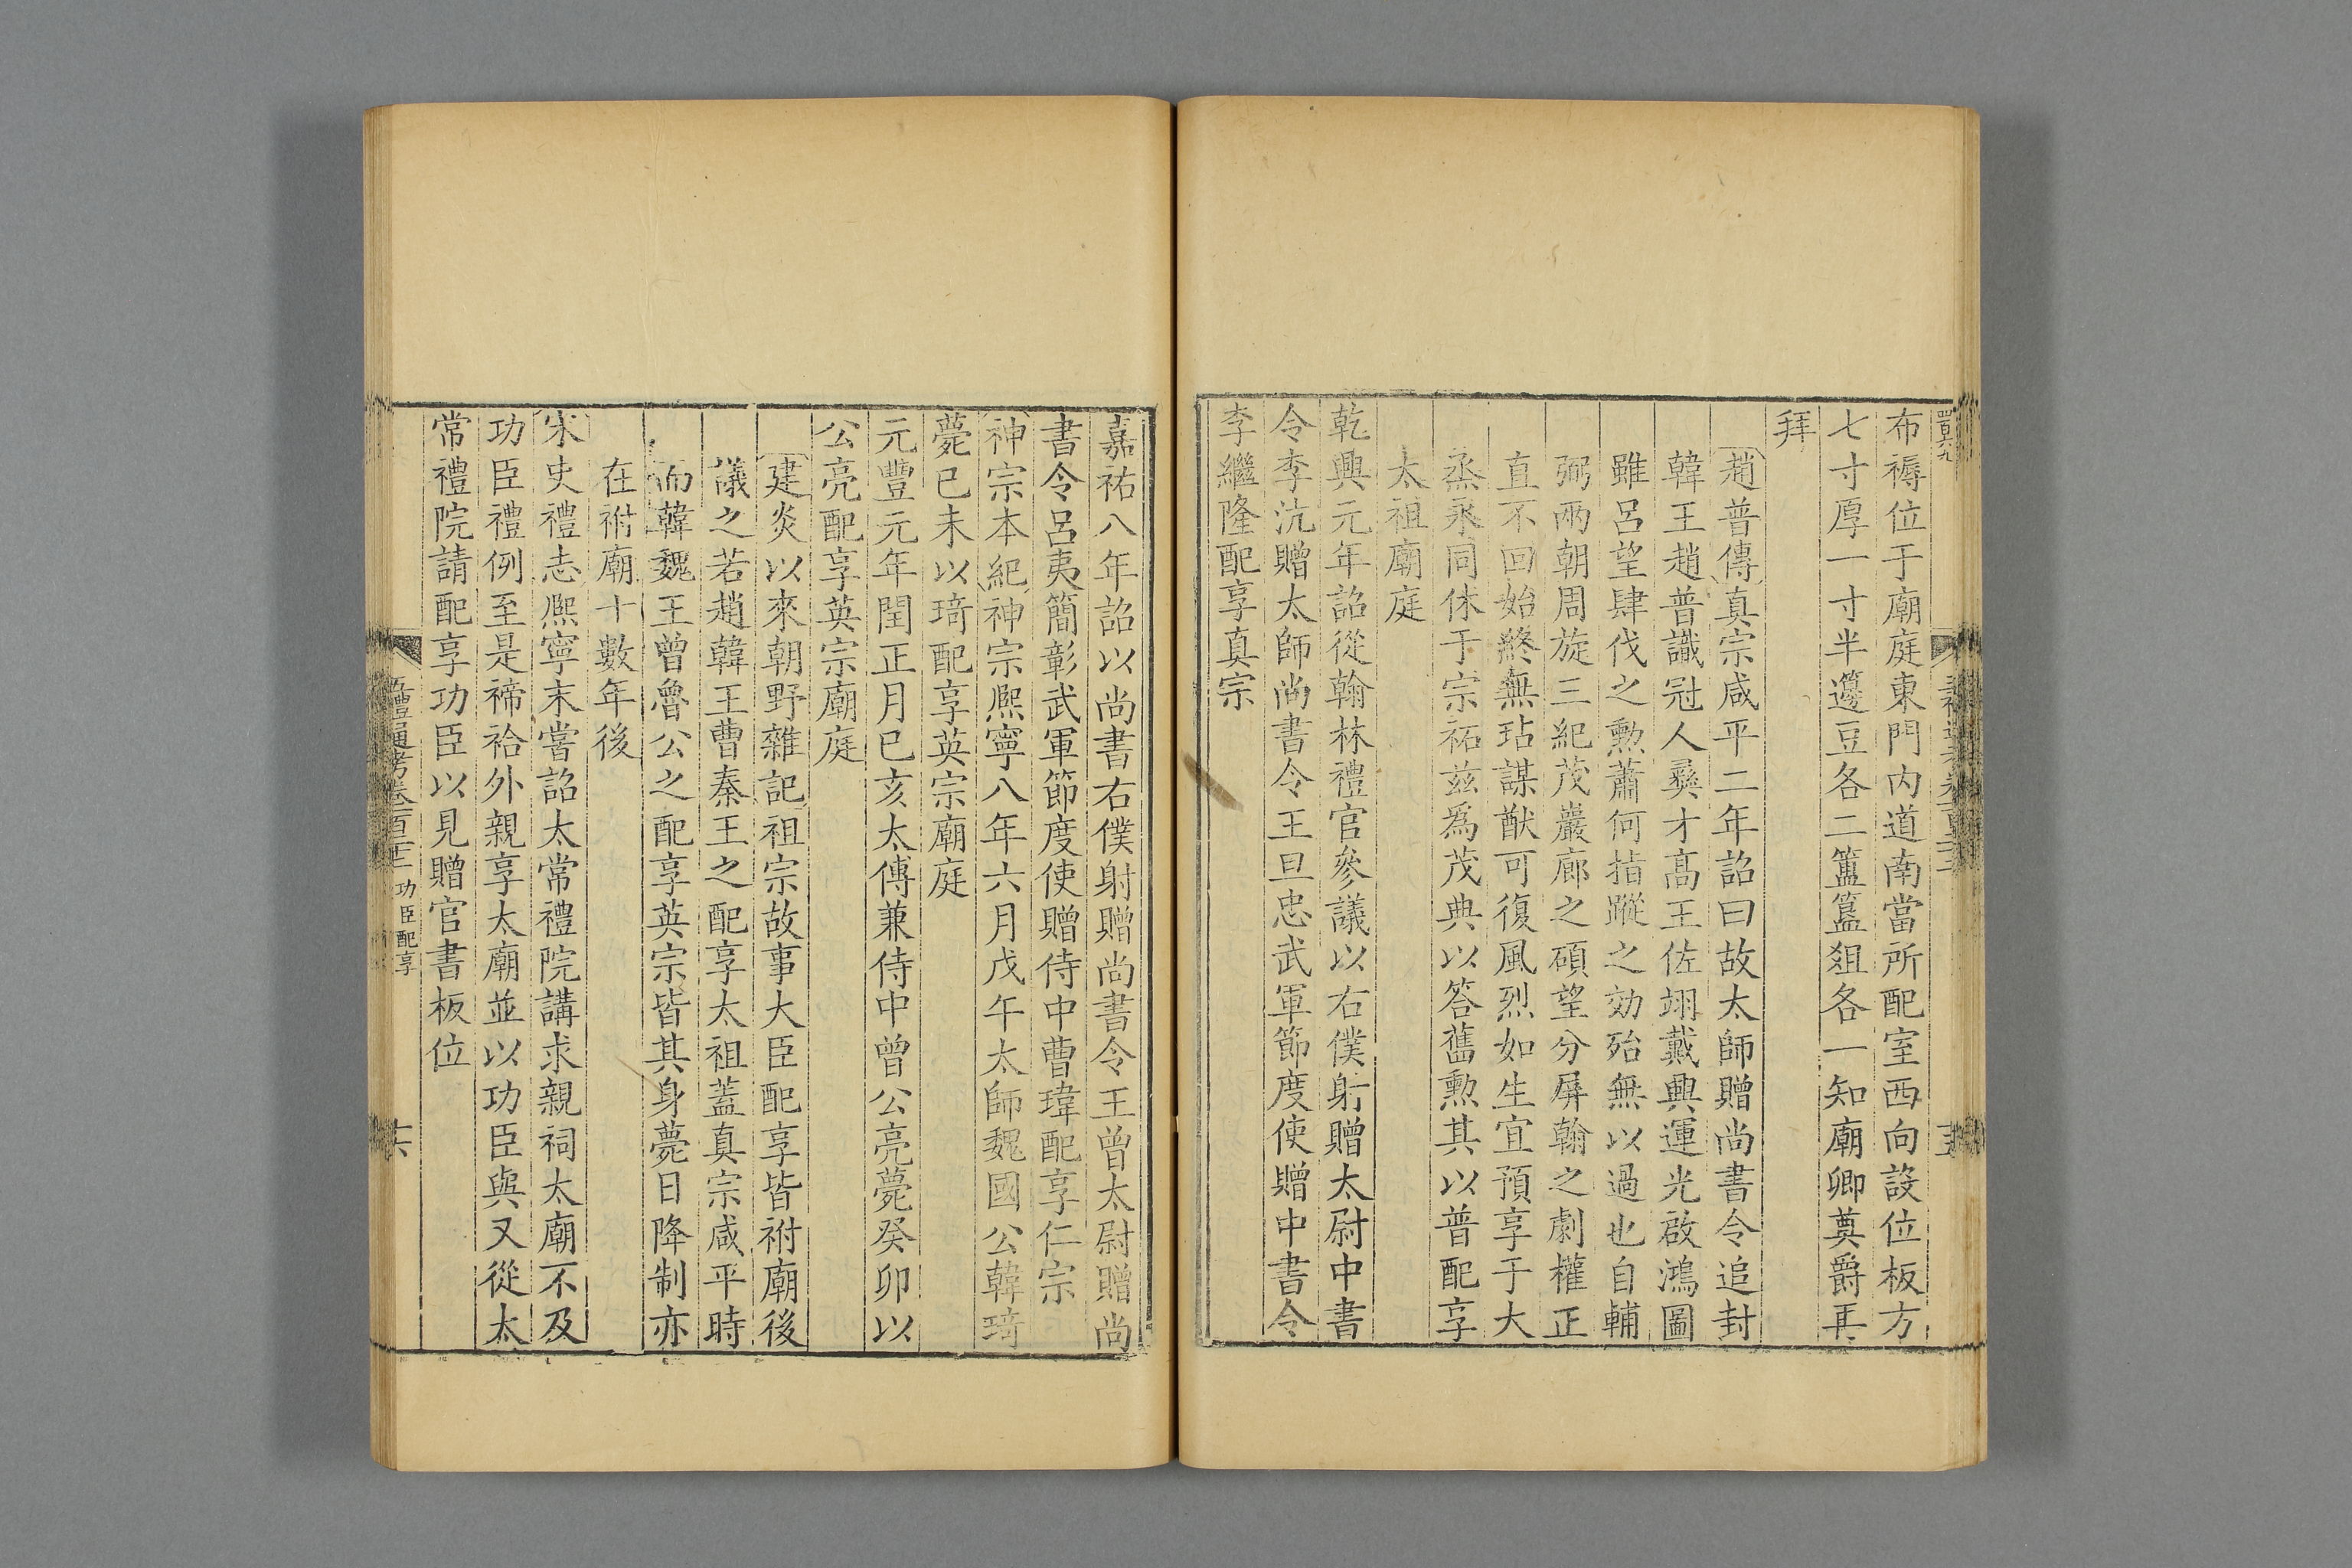 布褥位于廟庭東門內道南當所配室西向設位板方
七寸厚一寸半籩豆各二簠簋俎各一知廟卿奠爵再
拜
趙普傳真宗咸平二年詔曰故太師贈尚書令追封
韓王趙普識冠人彝才高王佐翊戴興運光啟鴻圖
雖呂望肆伐之勲蕭何指蹤之効殆無以過也自輔
弼兩朝周旋三紀茂巖廊之碩望分屏翰之劇權正
直不回始終無玷謀猷可復風烈如生宜預享于大
烝永同休于宗祏茲爲茂典以答舊勲其以普配享
太祖廟庭
乾興元年詔從翰林禮官參議以右僕射贈太尉中書
令李沆贈太師尚書令王旦忠武軍節度使贈中書令
李繼隆配享真宗
嘉祐八年詔以尚書右僕射贈尚書令王曾太尉贈尚
書令呂夷簡彰武軍節度使贈侍中曹瑋配享仁宗
神宗本紀神宗熙寧八年六月戊午太師魏國公韓琦
薨已未以琦配享英宗廟庭
元豐元年閏正月已亥太傅兼侍中曾公亮薨癸卯以
公亮配享英宗廟庭
建炎以來朝野雜記祖宗故事大臣配享皆祔廟後
議之若趙韓王曹秦王之配享太祖蓋真宗咸平時
而韓魏王曾魯公之配享英宗皆其身薨日降制亦
在祔廟十數年後
宋史禮志熙寧末嘗詔太常禮院講求親祠太廟不及
功臣禮例至是禘祫外親享太廟並以功臣與又從太
常禮院請配享功臣以見贈官書板位
五禮通考卷一百二十二 功臣配享 十六